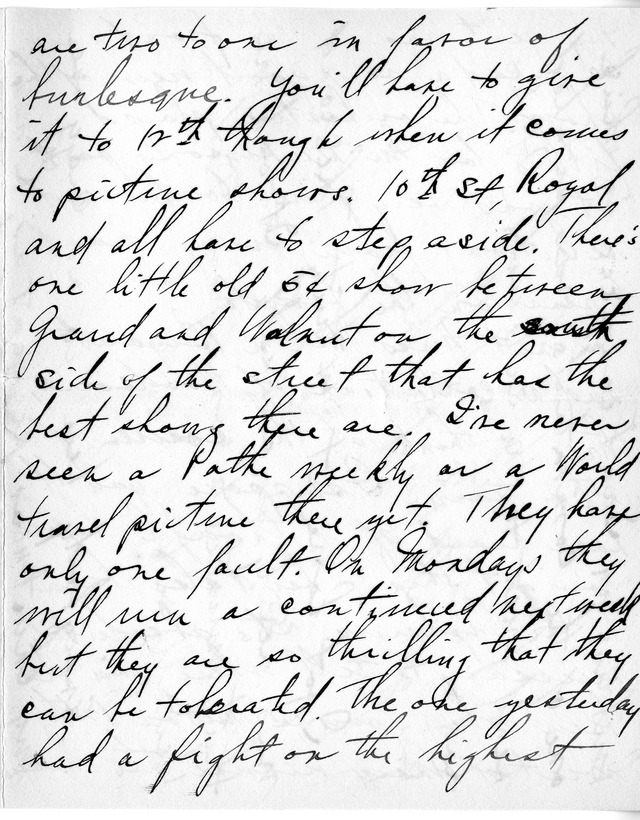 are two to one in favor of
burlesque. You'll have to give
it to 12th though when it comes
to picture shows. 10th St, Royal
and all have to step aside. There's
one little old 5¢ show between
Grand and Walnut on the south
side of the street that has the
best shows there are. I've never
seen a Pathe weekly or a World
travel picture there yet. They have
only one fault. On Mondays they
will run a continued next week
but they are so thrilling that they
can be tolerated. The one yesterday
had a fight on the highest